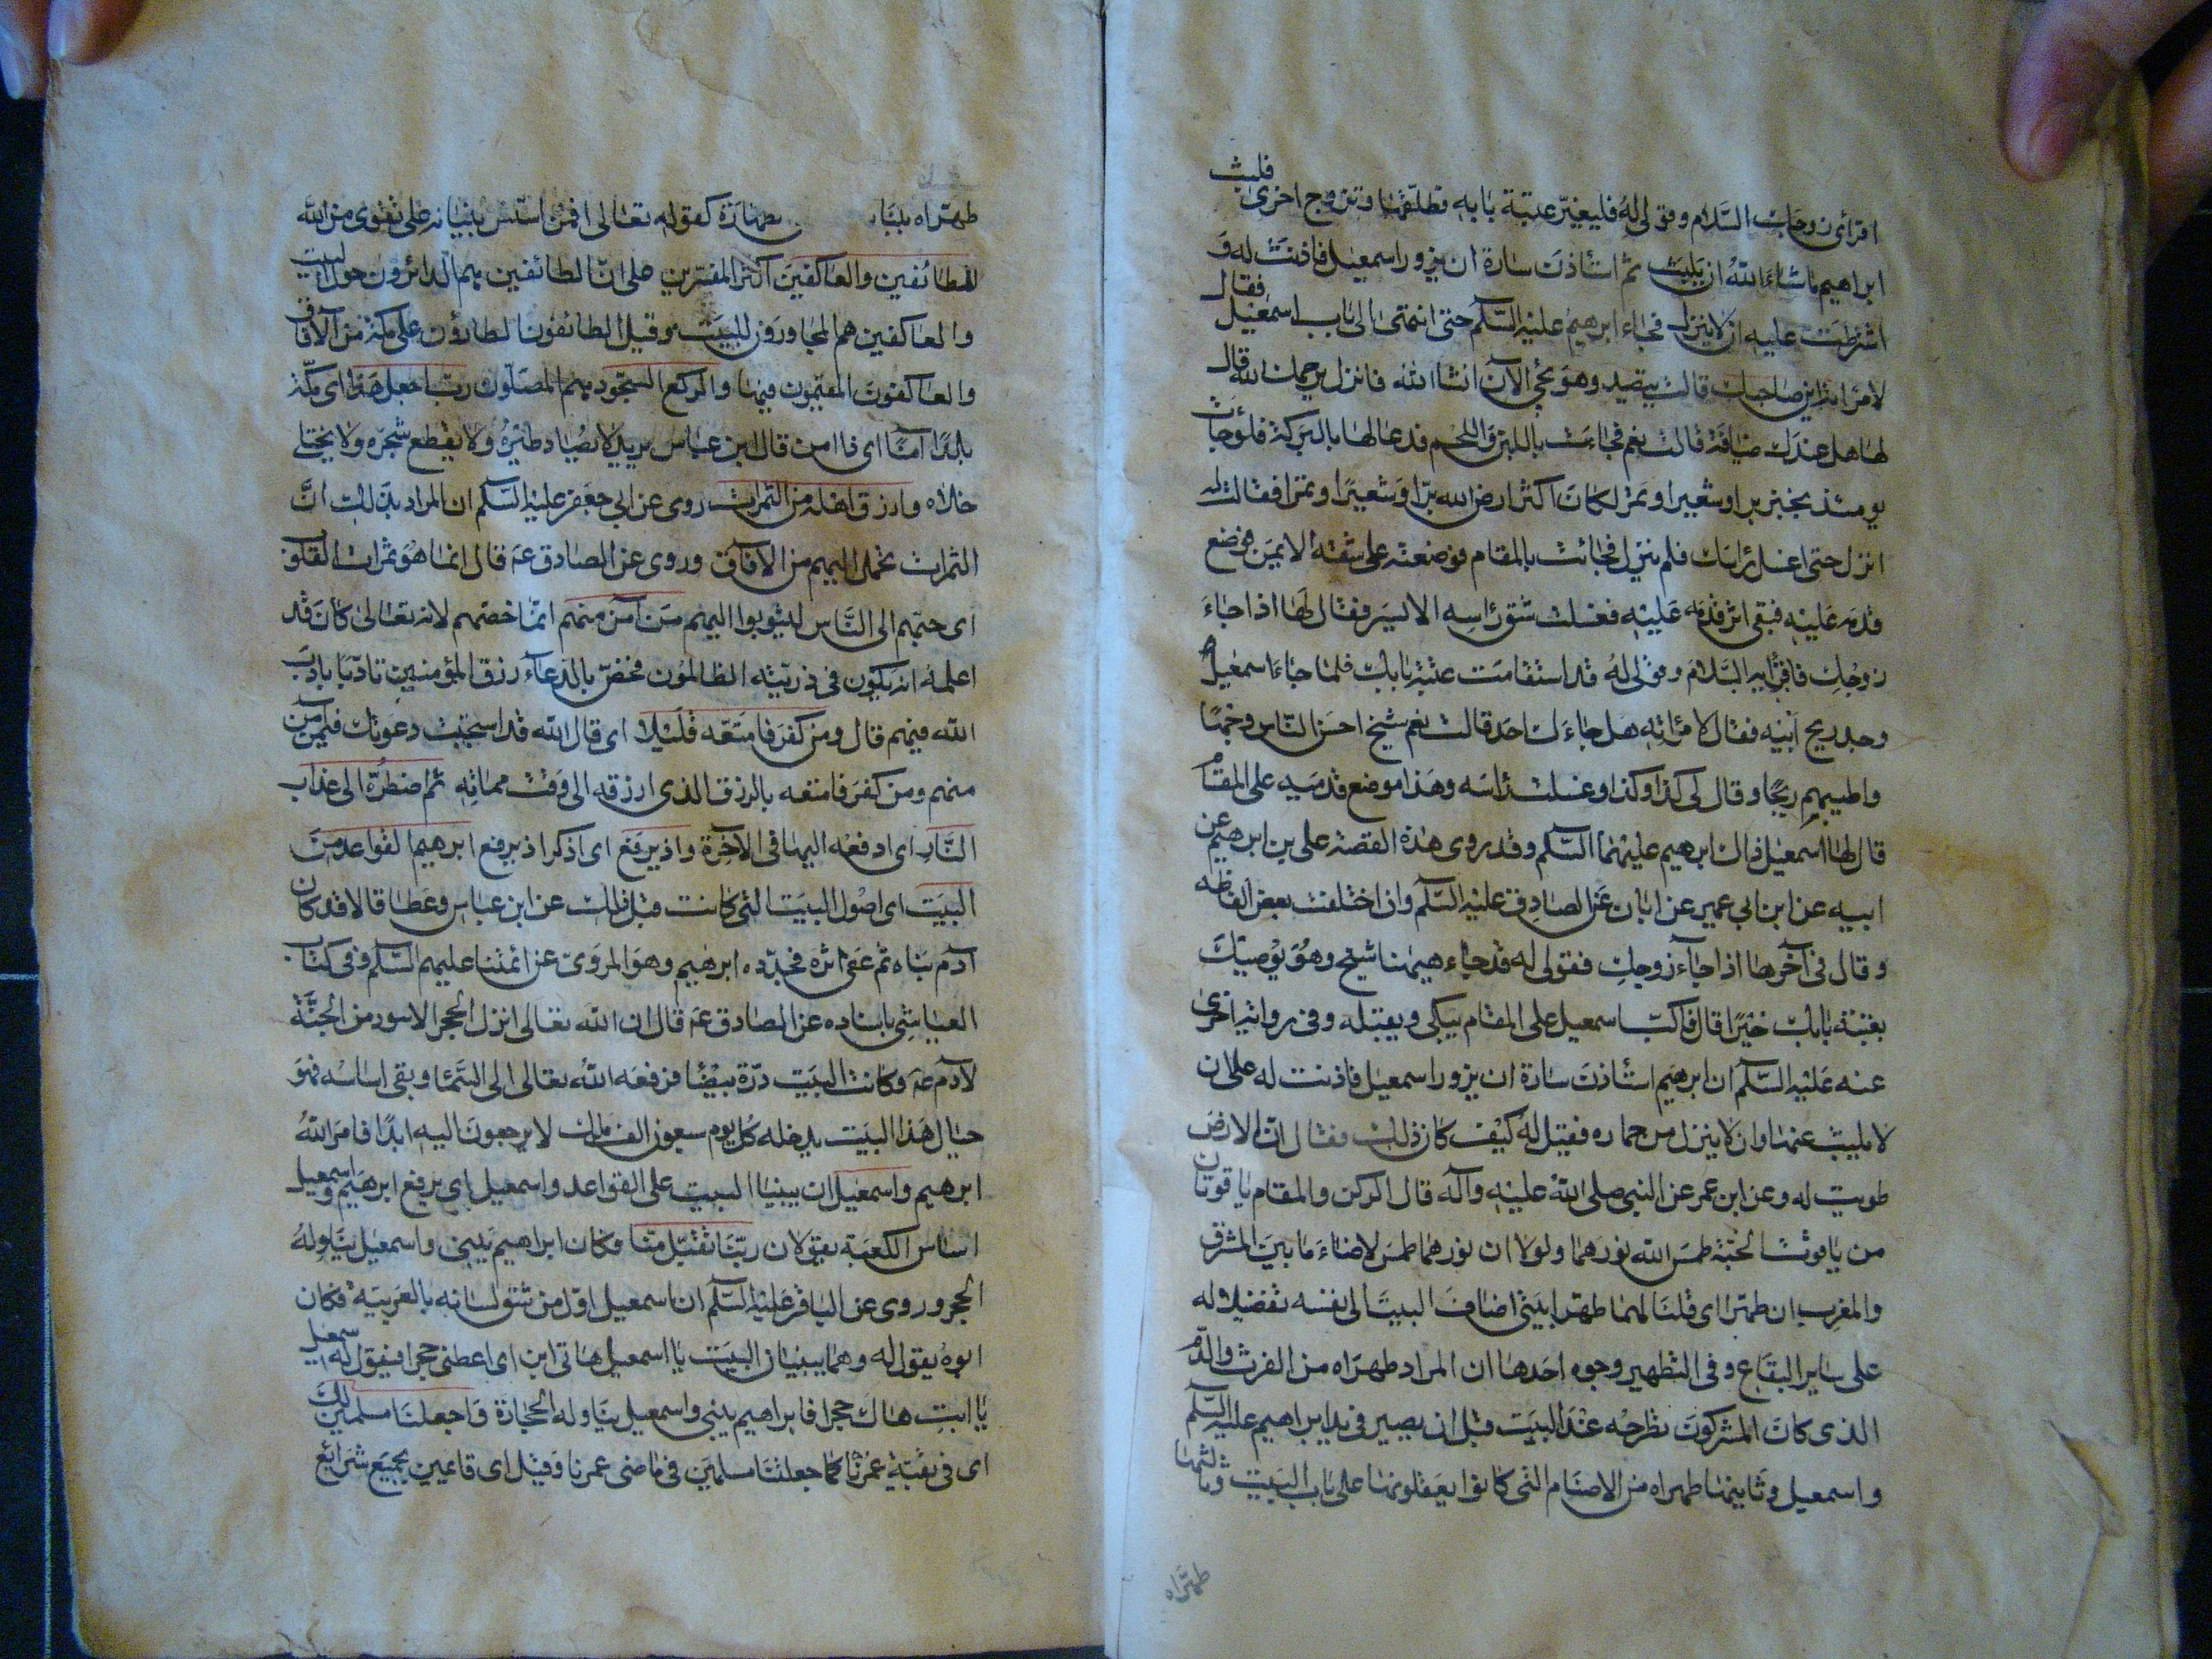 اقرأى زوجك السلام وقولى له فليغير عتبة بابه فطلقها وتزوج اخرى فلبث
ابراهيم ماشاء الله ان يلبث ثم استأذن سارة ان يزور اسمعيل فاذنت له و
اشترطت عليه ان لا ينزل فجاء ابرهيم عليه السلم حتى انتهى الى باب اسمعيل فقال
لامراته اين صاحبك قالت يتصيد وهو يجئ الآن انشاالله فانزل يرحمك الله قال
لها هل عندك ضيافة قالت نعم فجاءت باللبن واللحم فدعا لها بالبركة فلو جاءت
يومئذ بخبز بر او شعير او تمر لكان اكثر ارض الله برا وشعيرا وتمرا فقالت له
انزل حتى اغسل رأسك فلم ينزل فجائت بالمقام فوضعته على شقه الايمن فوضع
قدمه عليه فبقى اثر قدمه عليه فغسلت شق راسه الايسر فقال لها اذا جاء
زوجك فاقرأيه السلام وقولى له قد استقامت عتبة بابك فلما جاء اسمعيل
وجد ريح ابيه فقال لامرأته هل جاءك احد قالت نعم شيخ احسن الناس وجها
واطيبهم ريحا وقال لى كذا وكذا وغسلت راسه وهذا موضع قدميه على المقام
قال لها اسمعيل ذاك ابرهيم عليهما السلم وقد روى هذه القصة على بن ابرهيم عن
ابيه عن ابن ابى عمير عن ابان عن الصادق عليه السلم وان اختلفت بعض الفاظه
وقال فى آخرها اذا جاء زوجك فقولى له قد جاء هيهنا شيخ وهو يوصيك
بعتبة بابك خيرا قال فاكب اسمعيل على المقام يبكى ويقبله وفى رواية اخرى
عنه عليه السلم ان ابرهيم استأذن سارة ان يزور اسمعيل فاذنت له على ان
لا يلبث عنها وان لا ينزل من حماره فقيل له كيف كان ذلك فقال ان الارض
طويت له وعن ابن عمر عن النبى صلى الله عليه وآله قال الركن والمقام ياقوتتان
من ياقوت الجنة طمس الله نورهما ولولا ان نورهما طمس لاضاء ما بين المشرق
والمغرب ان طهرا اى قلنا لهما طهرا بيتى اضاف البيت الى نفسه تفضيلا له
على ساير البقاع وفى التطهير وجوه احدها ان المراد طهراه من الفرث والدم
الذى كان المشركون تطرحه عند البيت قبل ان يصير فى يد ابراهيم عليه السلم
واسمعيل وثانيها طهراه من الاصنام التى كانوا يعلقونها على باب البيت وثالثها
طهراه
طهراه ببناء طهارة كقوله تعالى افمن اسس بنيانه على تقوى من الله
للطائفين والعاكفين اكثر المفسرين على ان الطائفين هم الدائرون حول البيت
والعاكفين هم المجاورون للبيت وقيل الطائفون الطارؤن على مكة من الآفاق
والعاكفون المقيمون فيها والركع السجود هم المصلون رب اجعل هذا اى مكة
بلدا آمنا اى ذا امن قال ابن عباس يريد لا يصاد طيره ولا يقطع شجره ولا يختلى
خلاه وارزق اهله من الثمرات روى عن ابى جعفر عليه السلم ان المراد بذلك ان
الثمرات تحمل اليهم من الآفاق وروى عن الصادق عه قال انما هو ثمرات القلوب
اى حببهم الى الناس ليثوبوا اليهم من آمن منهم انما خصهم لانه تعالى كان قد
اعلمه انه يكون فى ذريته الظالمون فخص بالدعاء رزق المؤمنين تادبا بادب
الله فيهم قال ومن كفر فامتعه قليلا اى قال الله قد استجبت دعوتك فيمن آمن
منهم ومن كفر فامتعه بالرزق الذى ارزقه الى وقت مماته ثم اضطره الى عذاب
النار اى ادفعه اليها فى الآخرة واذ يرفع اى اذكر اذ يرفع ابرهيم القواعد من
البيت اى اصول البيت التى كانت قبل ذلك عن ابن عباس وعطا قالا قد كان
آدم بناه ثم عفى اثره فجدده ابرهيم وهو المروى عن ائمتنا عليهم السلم وفى كتاب
العياشى باسناده عن الصادق عه قال ان الله تعالى انزل الحجر الاسود من الجنة
لآدم عه وكانت البيت درة بيضا فرفعه الله تعالى الى السما وبقى اساسه فهو
حيال هذا البيت يدخله كل يوم سبعون الف ملك لا يرجعون اليه ابدا فامر الله
ابرهيم واسمعيل ان يبنيا البيت على القواعد واسمعيل اى يرفع ابرهيم واسمعيل
اساس الكعبة يقولان ربنا تقبل منا فكان ابراهيم يبنى واسمعيل يناوله
الحجر وروى عن الباقر عليه السلم ان اسمعيل اول من شق لسانه بالعربية فكان
ابوه يقول له وهما يبنيان البيت يا اسمعيل هاتى ابن اى اعطنى حجرا فيقول له اسمعيل
يا ابت هاك حجرا فابراهيم يبنى واسمعيل يناوله الحجارة واجعلنا مسلمين لك
اى فى بقية عمرنا كما جعلتنا مسلمين فى ماضى عمرنا وقيل اى قائمين بجميع شرائع